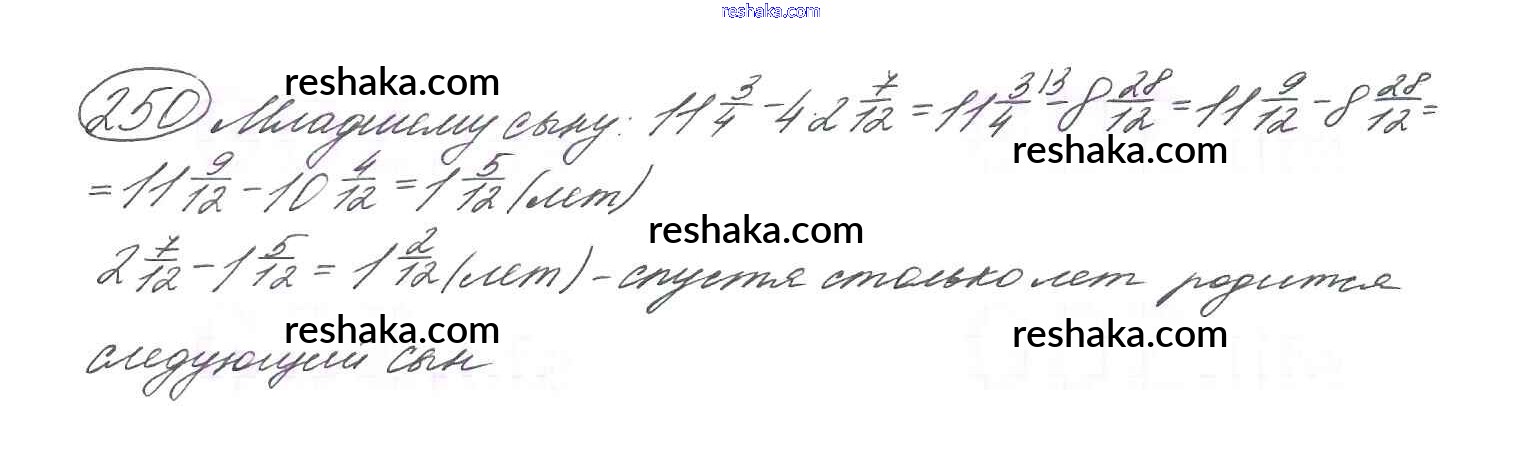 reshaka.com
reshaka.com
250 Младшему сыну: 11 3/4 - 4·2 7/12 = 11 3/4 \3 - 8 28/12 = 11 9/12 - 8 28/12 =
reshaka.com
= 11 9/12 - 10 4/12 = 1 5/12 (лет)
reshaka.com
2 7/12 - 1 5/12 = 1 2/12 (лет) - спустя столько лет родится
reshaka.com
reshaka.com
следующий сын